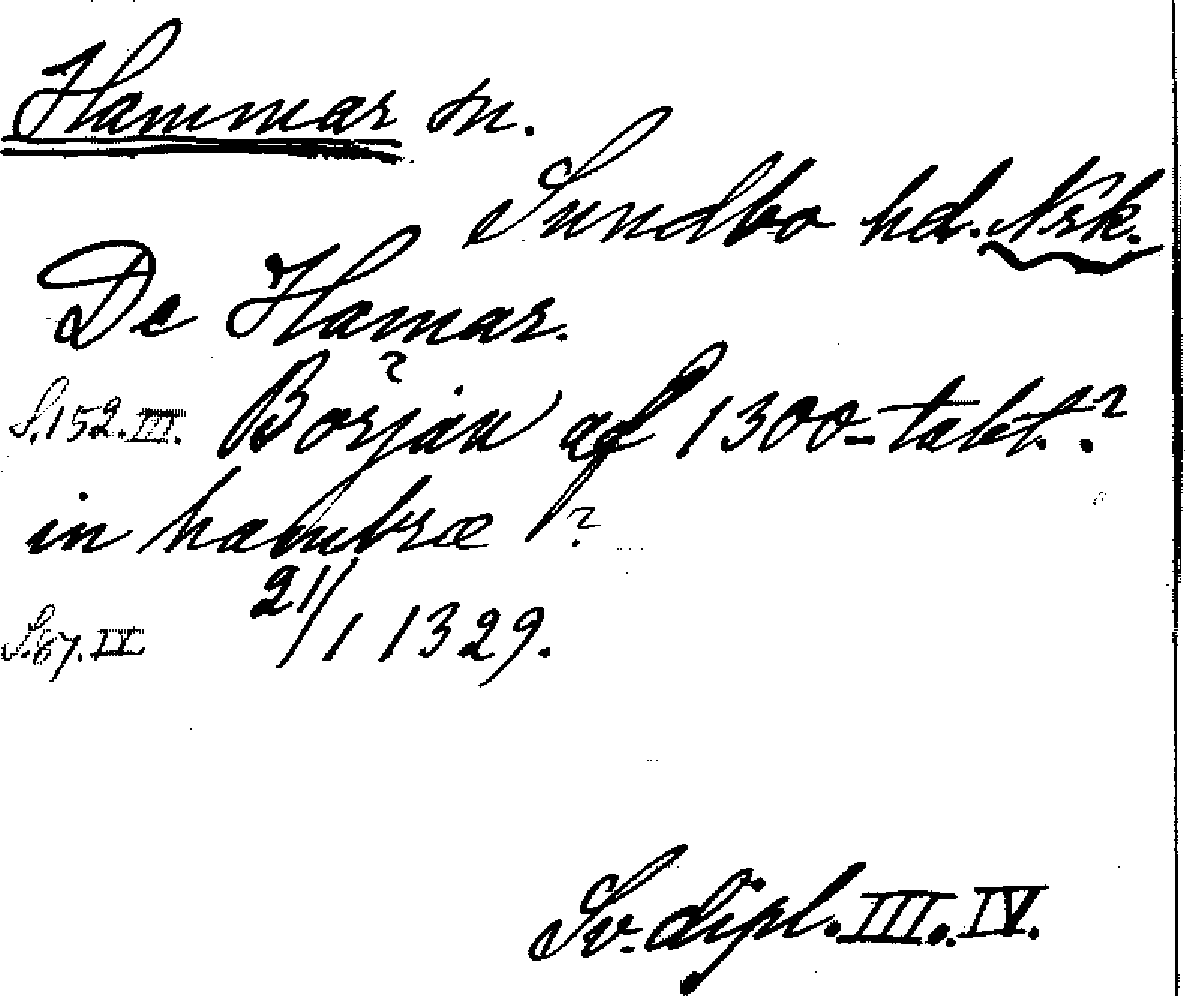 Hammar sn.
Sundbo hd. Nrk.
De Hamar.
S. 152. III. Börján af 1300-talet.?
in hambræ ?
S. 87. IV 21/1 1329.
Sv. dipl. III. IV.